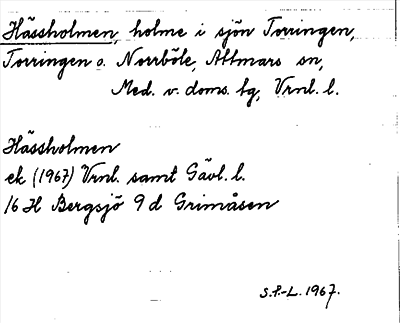 Hässholmen, holme i sjön Torringen,
Torringen o. Norrböle, Attmars sn,
Med. v. doms. tg, Vrnl. l.
Hässholmen
ek (1967) Vrnl. samt Gävl. l.
16 H Bergsjö 9 d Grimåsen
S.P.-L. 1967.